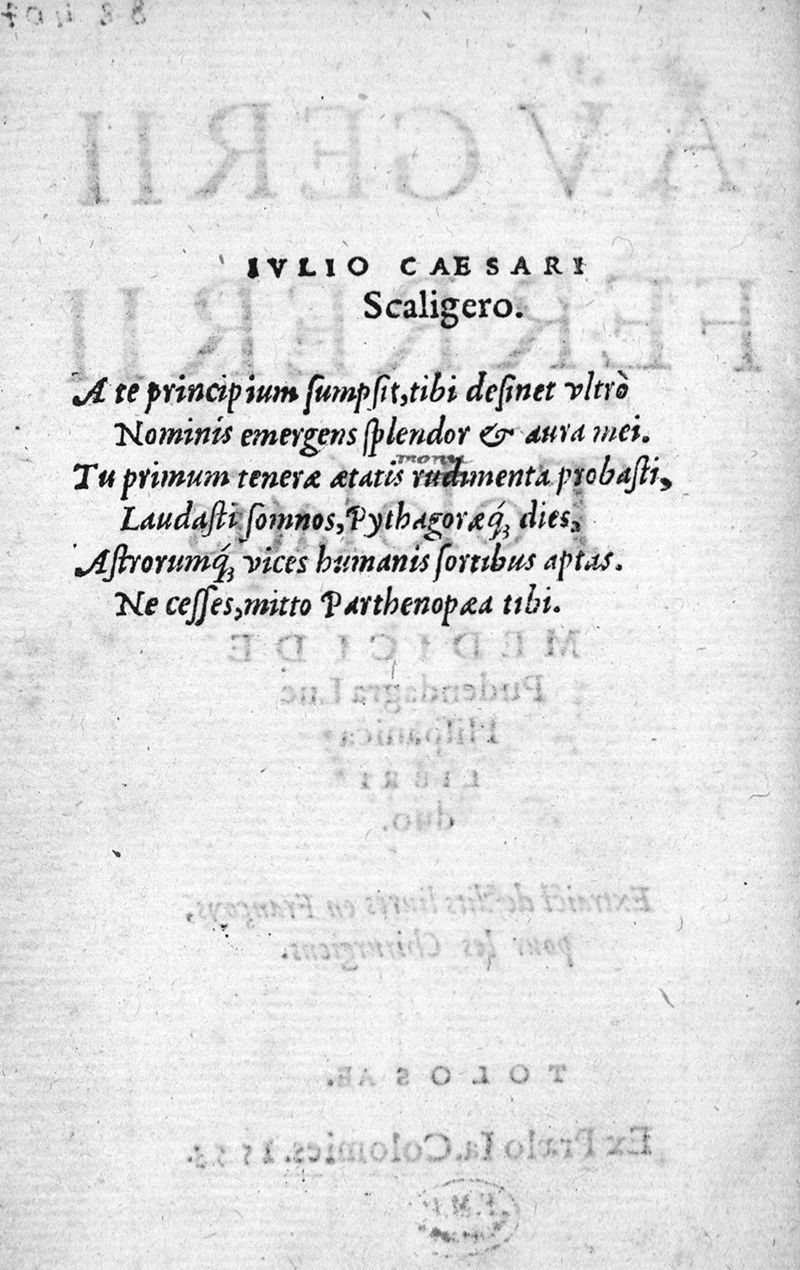 IVLIO CAESARI
Scaligero.
A te principium ſumpſit, tibi deſinet vltrò
Nominis emergens ſplendor & aura mei.
monu
Tu primum teneræ ætatis rudimenta probaſti,
Laudaſti ſomnos, Pythagoræq́ꝫ dies,
Aſtrorumq́ꝫ vices humanis ſortibus aptas.
Ne ceſſes, mitto Parthenopæa tibi.